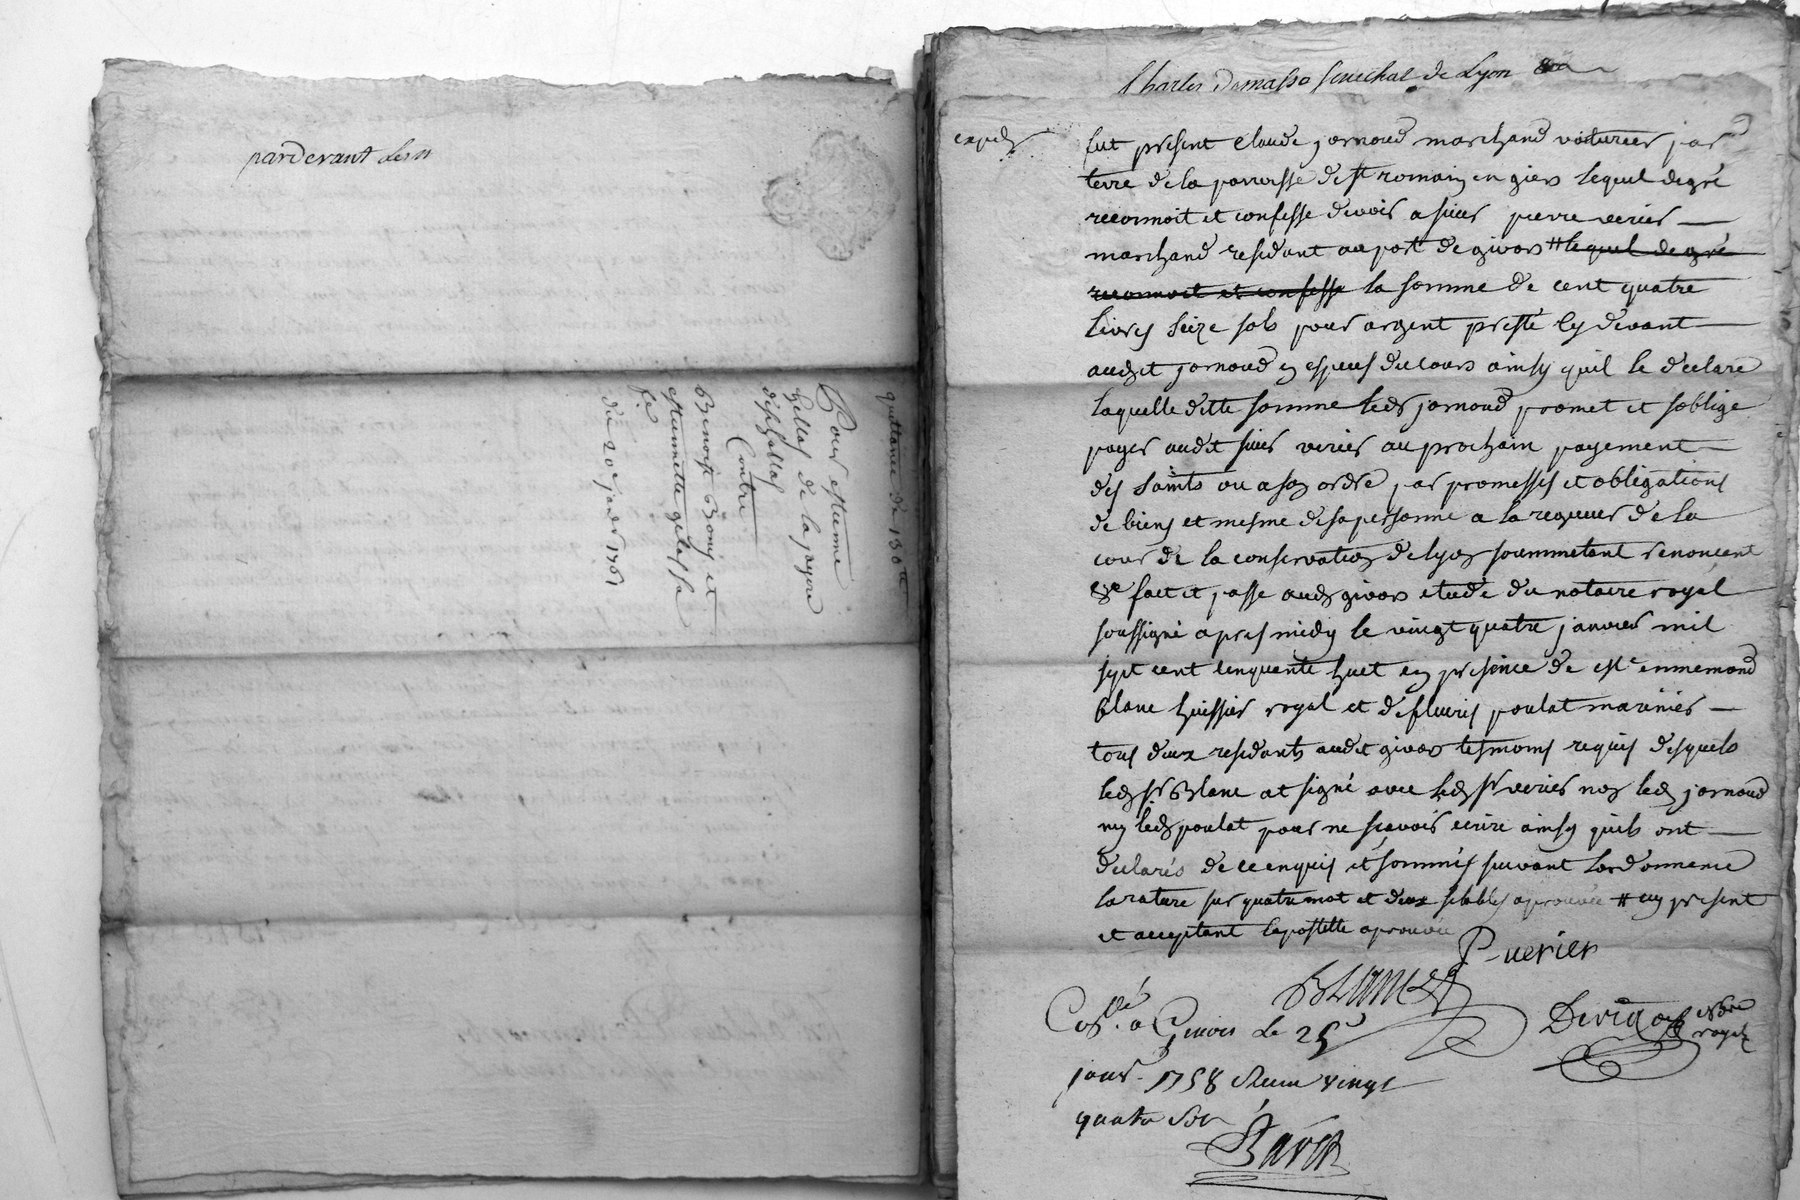 pardevant les n
quittance de 130 tt
Pour estienne
gellas de la payere
Contre
Benoist Bony et
estiennette gelas sa
fe
du 20e janvr 1761
Charles Demasso senechal de Lyon
exped
fut present Claude jornoud marchand voiturier par
terre de la parroisse de st romain en giers lequel de gré
reconnoit et confesse devoir a sieur pierre verier
marchand residant au port de givors # lequel de gré
reconnoit et confesse la somme de cent quatre
livres seize sols pour argent presté cy devant
audit jornoud en especes du cours ainsy quil le declare
laquelle ditte somme ledt jornoud promet et soblige
payer audit sieur verier au prochain payement
des saints ou a son ordre par promesses et obligations
de biens et mesme de sa personne a la rigueur de la
cour de la conservation de lyon soummetant renoncent
&c fait et passe audt givors etude du notaire royal
soussigné apres midy le vingt quatre janvier mil
sept cent cinquante huit en presence de ennemond
blanc huissier royal et de fleuris poulat marinier
tous deux residants audit givors tesmoins requis desquels
ledt sr Blanc at signé avec ledt sr verier non ledt jornoud
ny ledt poulat pour ne scavoir ecrire ainsy quils ont
declarés de ce enquis et sommés suivant lordonnence
la rature sur quatre mot et deux silables aprouvée # icy present
et acceptant lapostille aprouvée
P verier
BLANC
nore
royal
Collé a Givors le 25e
janvr 1758 Reçu vingt
quatre sols